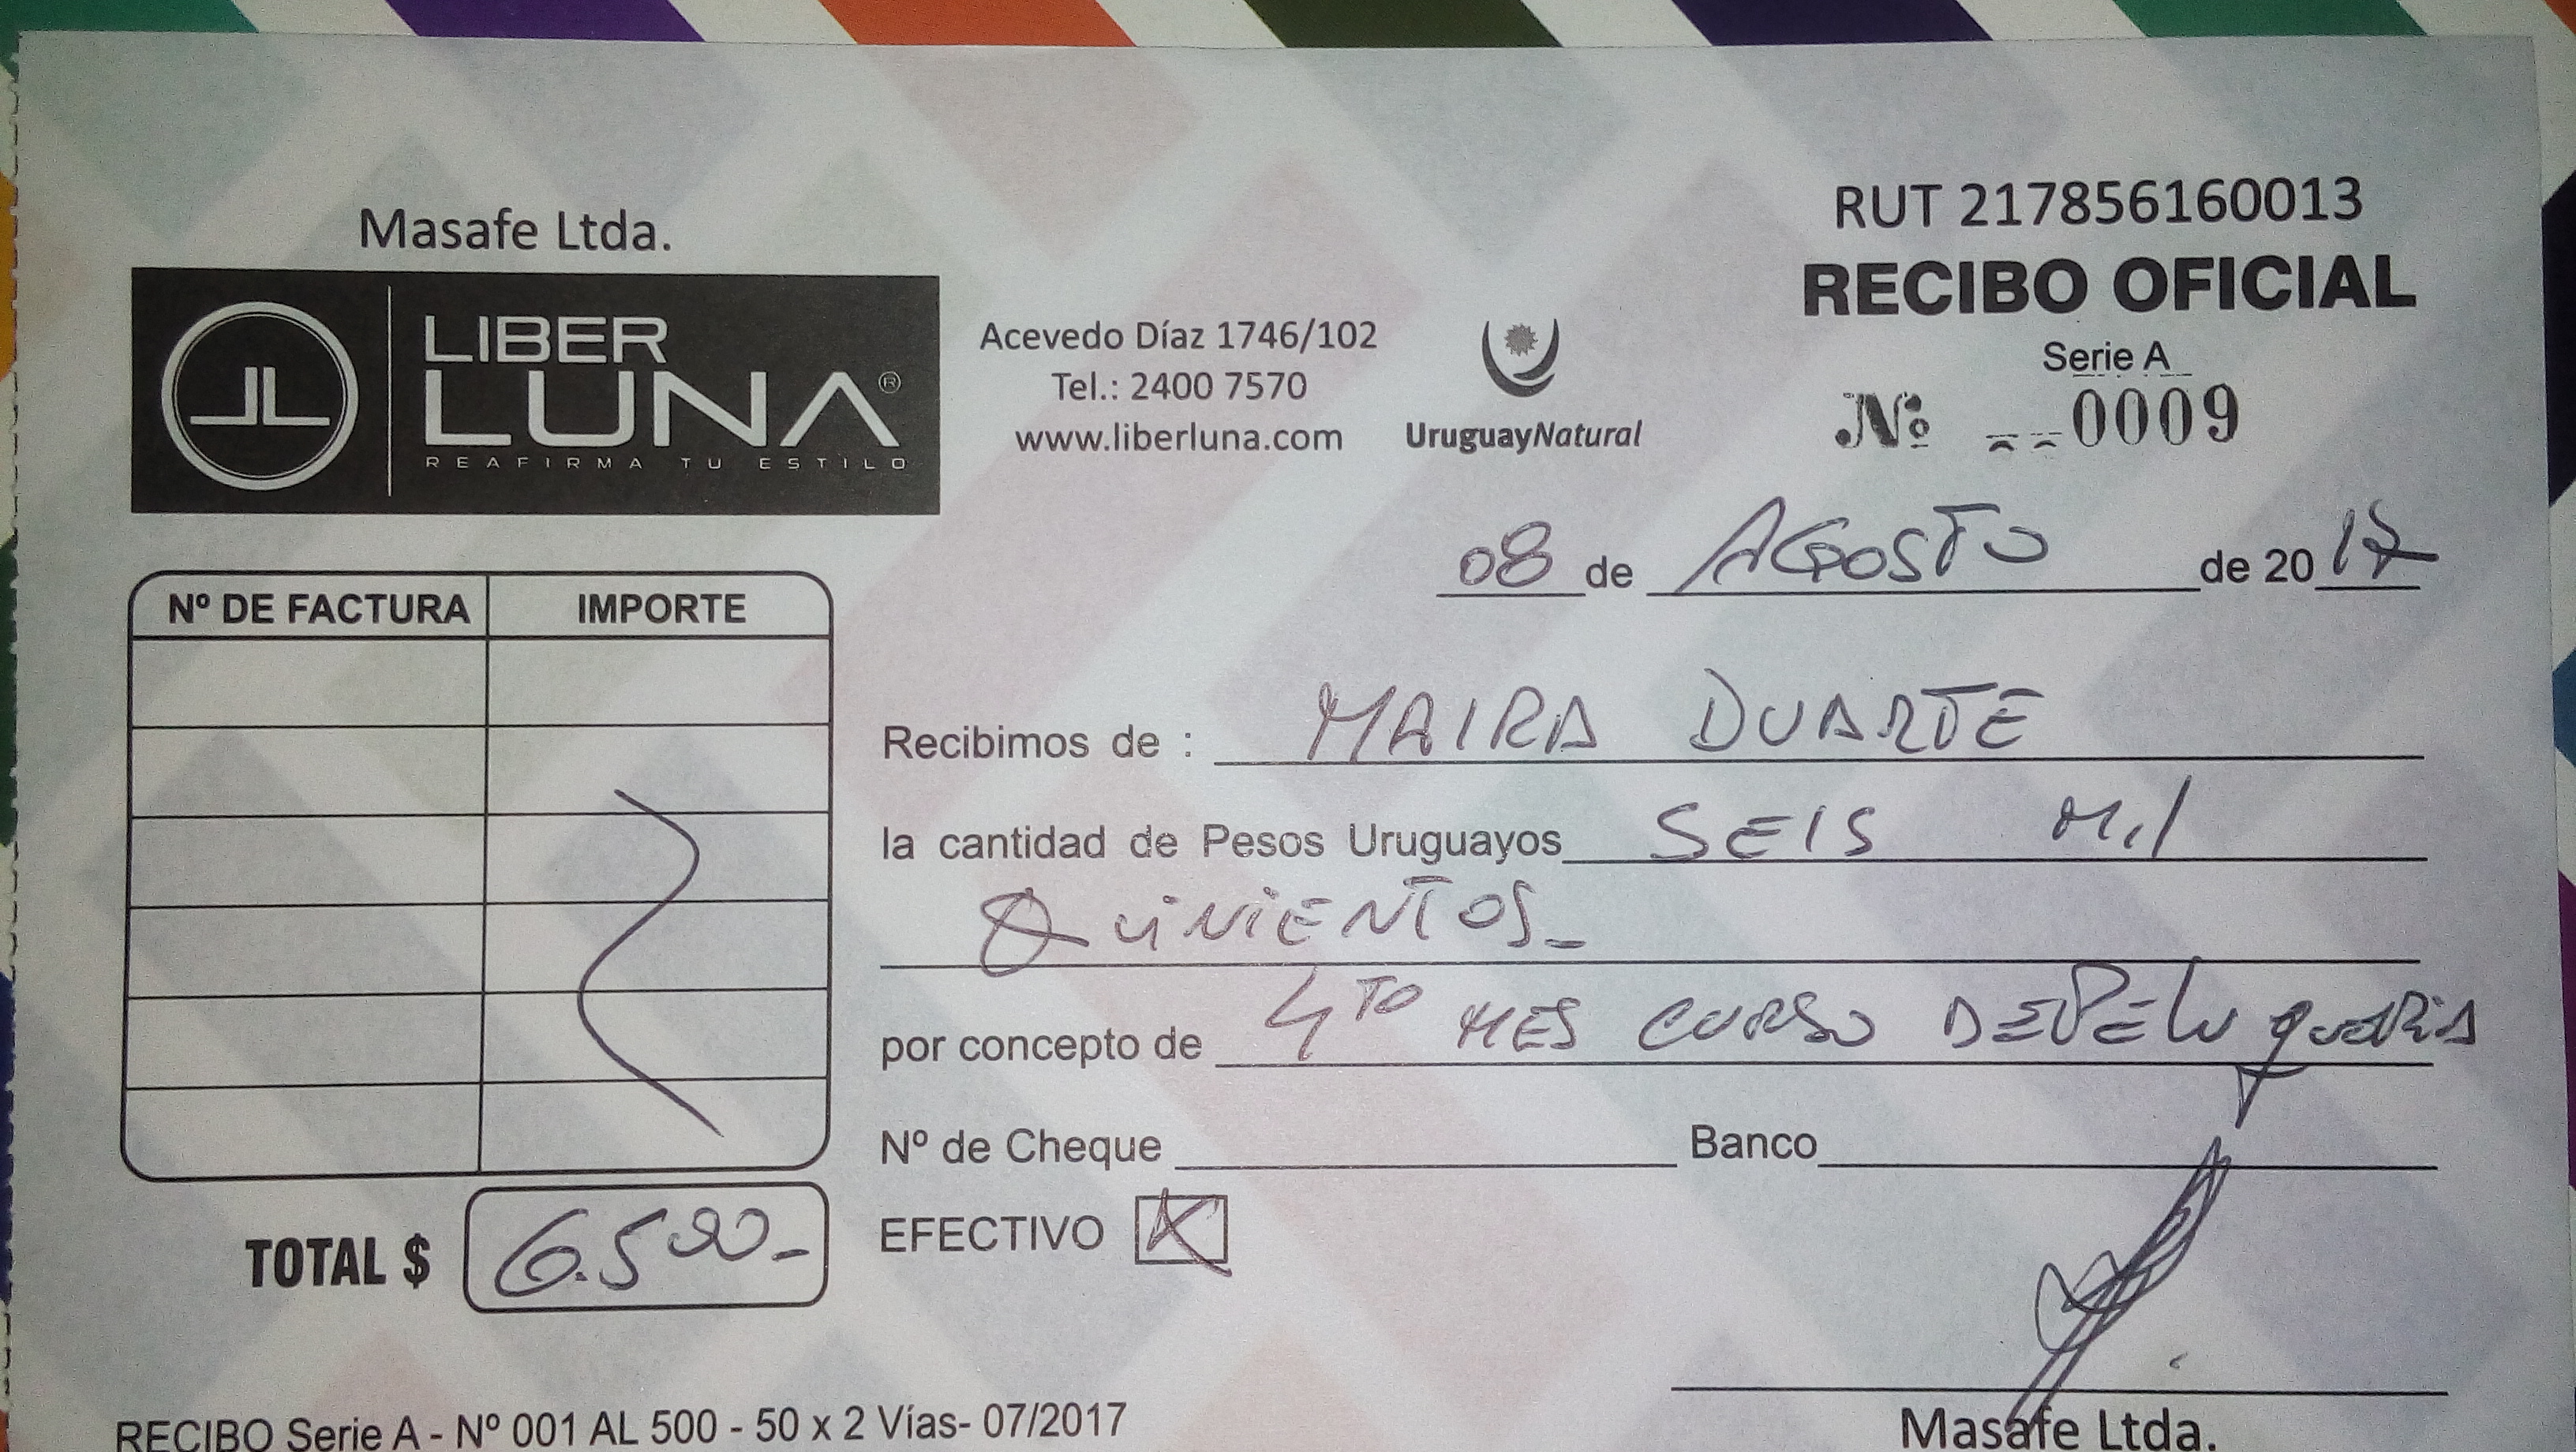 Masafe Ltda.
JL
LIBER
LUNA®
REAFIRMA TU ESTILO
Acevedo Díaz 1746/102
Tel.: 2400 7570
www.liberluna.com
UruguayNatural
RUT 217856160013
RECIBO OFICIAL
Serie A
Nº 0009
08 de AGOSTO de 2017
Nº DE FACTURA IMPORTE
Recibimos de : MAIRA DUARTE
la cantidad de Pesos Uruguayos SEIS Mil
QUINIENTOS_
por concepto de 4TO MES CURSO DE PELUQUERIA
Nº de Cheque Banco
EFECTIVO X
TOTAL $ 6.500-
Masafe Ltda.
RECIBO Serie A - Nº 001 AL 500 - 50 x 2 Vías- 07/2017